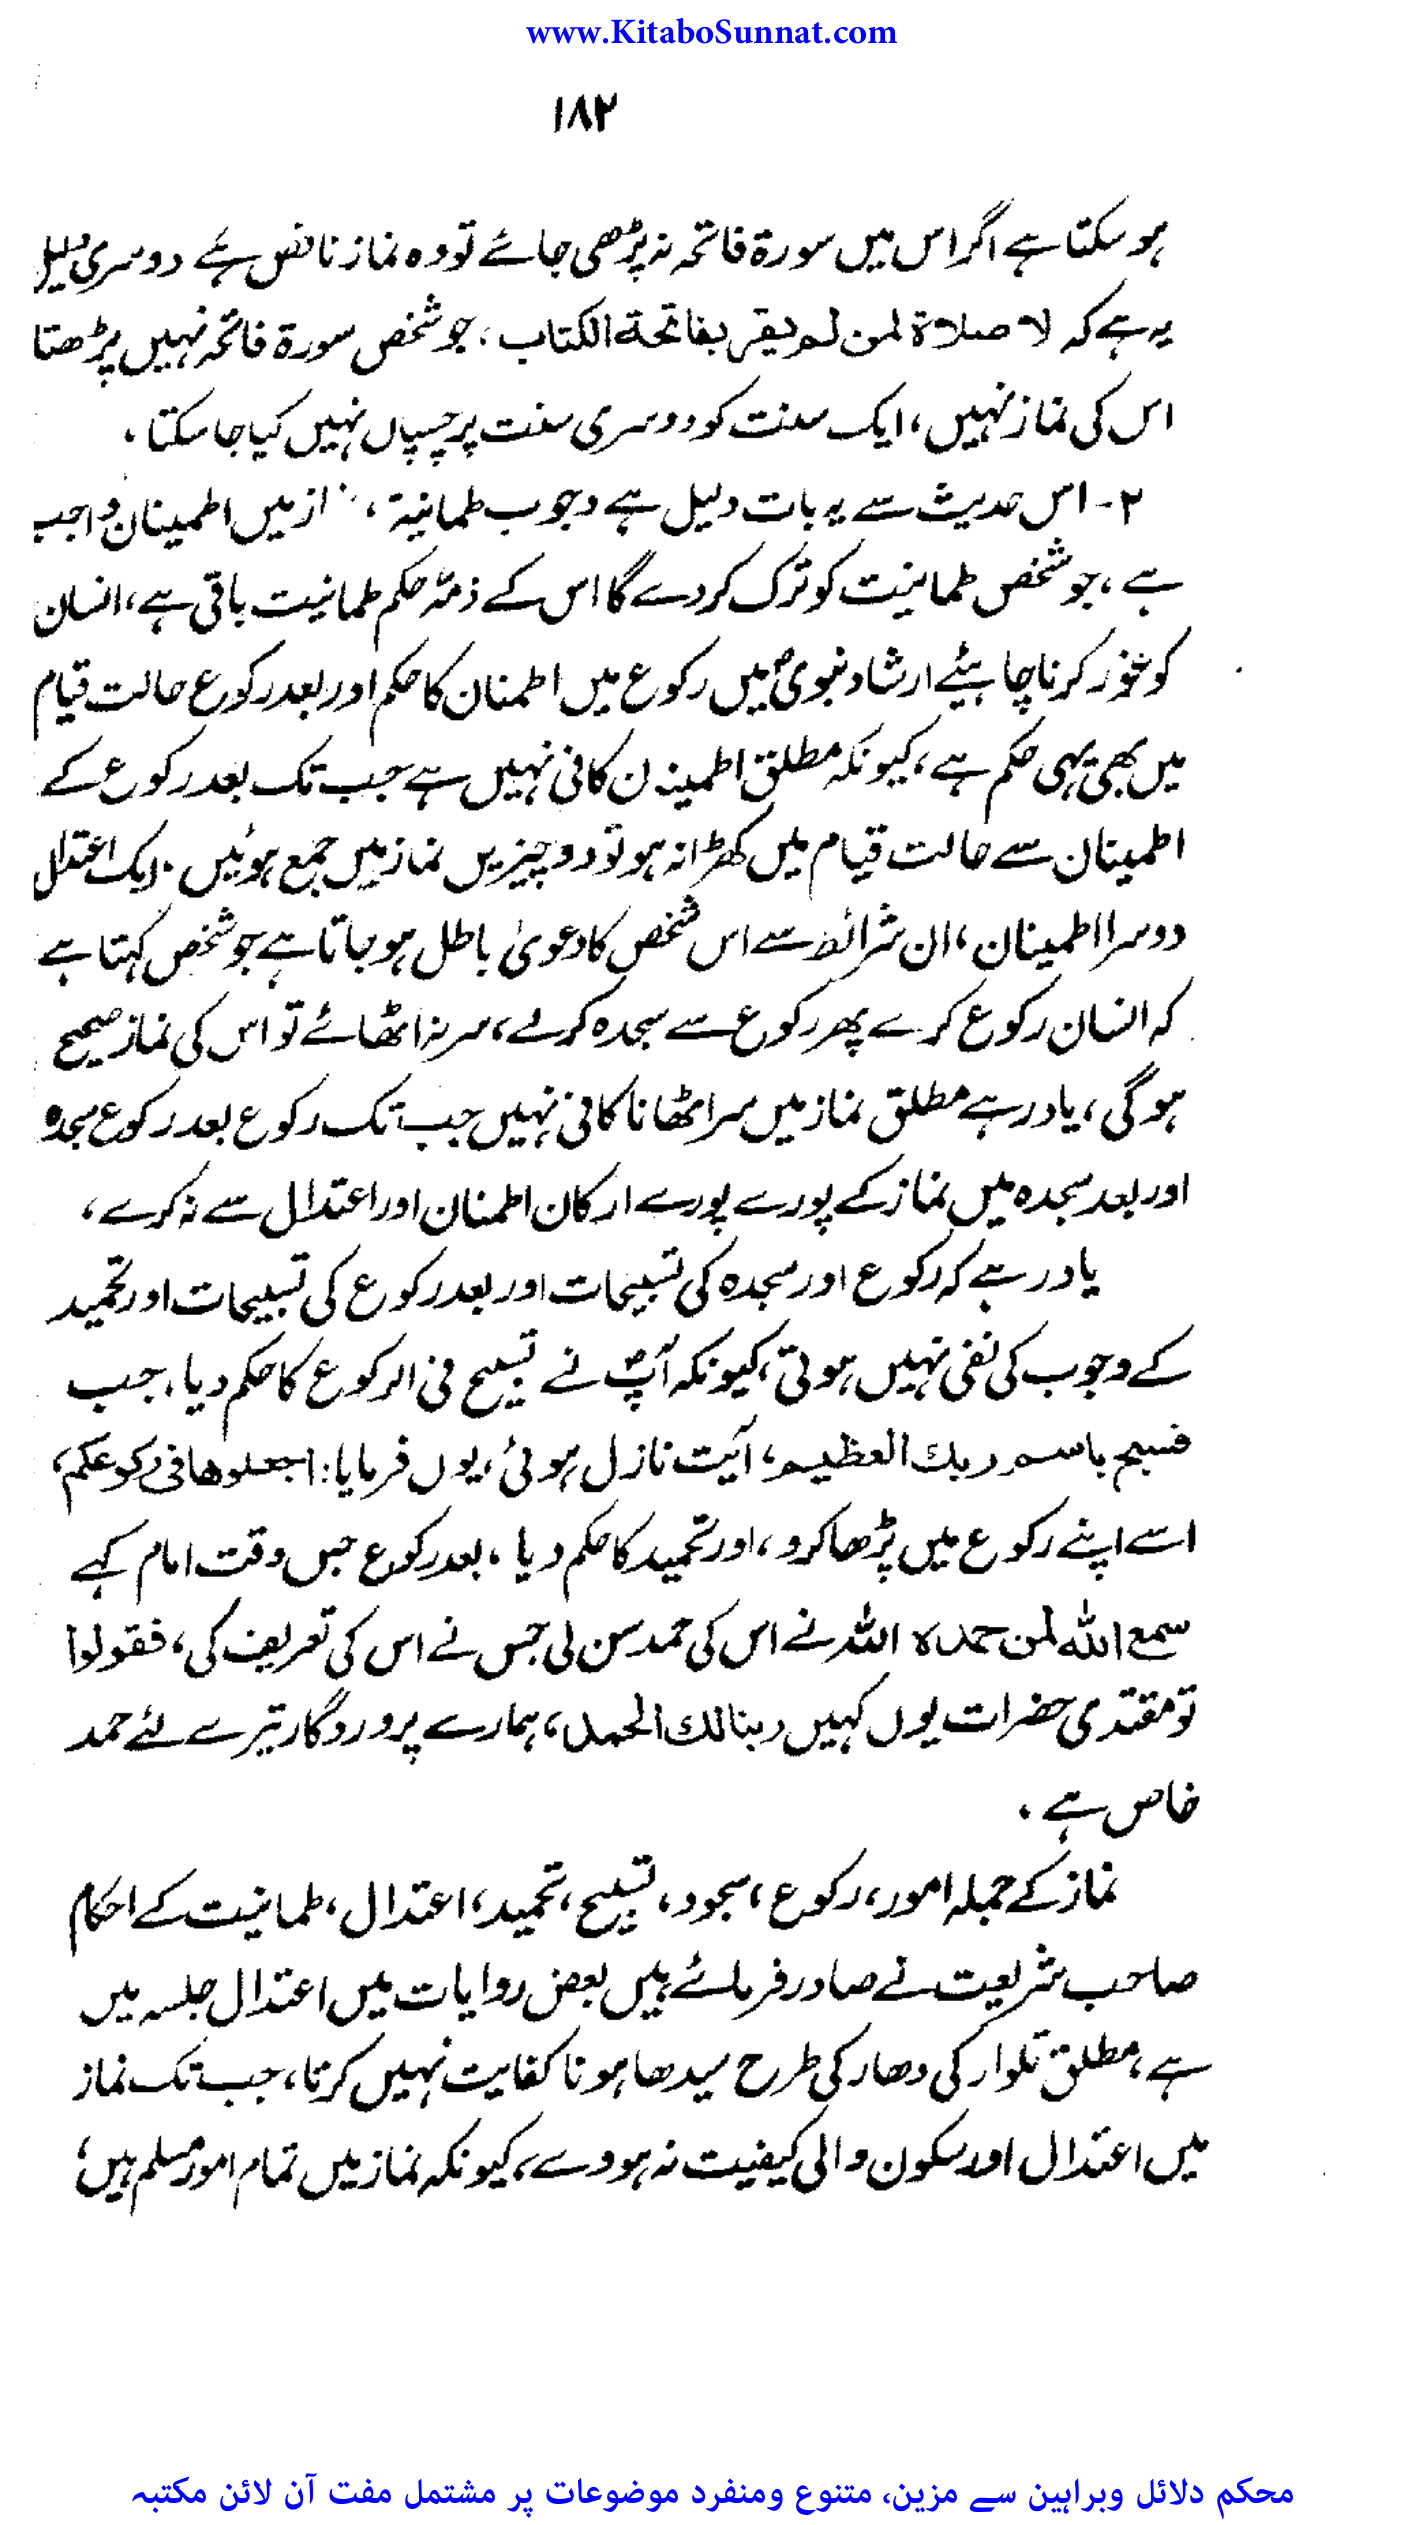 www.KitaboSunnat.com
۱۸۲
ہو سکتا ہے اگر اس میں سورۃ فاتحہ نہ پڑھی جائے تو وہ نماز ناقص ہے دوسری دلیل
یہ ہے کہ لا صلاۃ لمن لم یقرء بفاتحۃ الکتاب ، جو شخص سورۃ فاتحہ نہیں پڑھتا
اس کی نماز نہیں ، ایک سنت کو دوسری سنت پر چسپاں نہیں کیا جا سکتا ۔
۲- اس حدیث سے یہ بات دلیل ہے وجوب طمانیۃ ، نماز میں اطمینان واجب
ہے ، جو شخص طمانیت کو ترک کر دے گا اس کے ذمہ حکم طمانیت باقی ہے ، انسان
کو غور کرنا چاہیئے ارشاد نبویؐ میں رکوع میں اطمنان کا حکم اور بعد رکوع حالت قیام
میں بھی یہی حکم ہے ، کیونکہ مطلق اطمینان کافی نہیں ہے جب تک بعد رکوع کے
اطمینان سے حالت قیام میں کھڑا نہ ہو تو دو چیزیں نماز میں جمع ہوئیں ۔ ایک اعتدال
دوسرا اطمینان ، ان شرائط سے اس شخص کا دعویٰ باطل ہو جاتا ہے جو شخص کہتا ہے
کہ انسان رکوع کرے پھر رکوع سے سجدہ کرلے ، سر نہ اٹھائے تو اس کی نماز صحیح
ہوگی ، یاد رہے مطلق نماز میں سر اٹھانا کافی نہیں جب تک رکوع بعد رکوع سجدہ
اور بعد سجدہ میں نماز کے پورے پورے ارکان اطمنان اور اعتدال سے نہ کرے ،
یاد رہے کہ رکوع اور سجدہ کی تسبیحات اور بعد رکوع کی تسبیحات اور تحمید
کے وجوب کی نفی نہیں ہوتی ، کیونکہ آپؐ نے تسبیح فی الرکوع کا حکم دیا ، جب
فسبح باسم ربك العظیم ، آیت نازل ہوئی ، یوں فرمایا : اجعلوھا فی رکوعکم ،
اسے اپنے رکوع میں پڑھا کرو ، اور تحمید کا حکم دیا ، بعد رکوع جس وقت امام کہے
سمع اللہ لمن حمدہ اللہ نے اس کی حمد سن لی جس نے اس کی تعریف کی ، فقولوا
تو مقتدی حضرات یوں کہیں ربنا لك الحمد ، ہمارے پروردگار تیرے لئے حمد
خاص ہے ۔
نماز کے جملہ امور ، رکوع ، سجود ، تسبیح ، تحمید ، اعتدال ، طمانیت کے احکام
صاحب شریعت نے صادر فرمائے ہیں بعض روایات میں اعتدال جلسہ میں
ہے ، مطلق تلوار کی دھار کی طرح سیدھا ہونا کفایت نہیں کرتا ، جب تک نماز
میں اعتدال اور سکون والی کیفیت نہ ہووے ، کیونکہ نماز میں تمام امور مسلم ہیں ،
محکم دلائل وبراہین سے مزین، متنوع ومنفرد موضوعات پر مشتمل مفت آن لائن مکتبہ